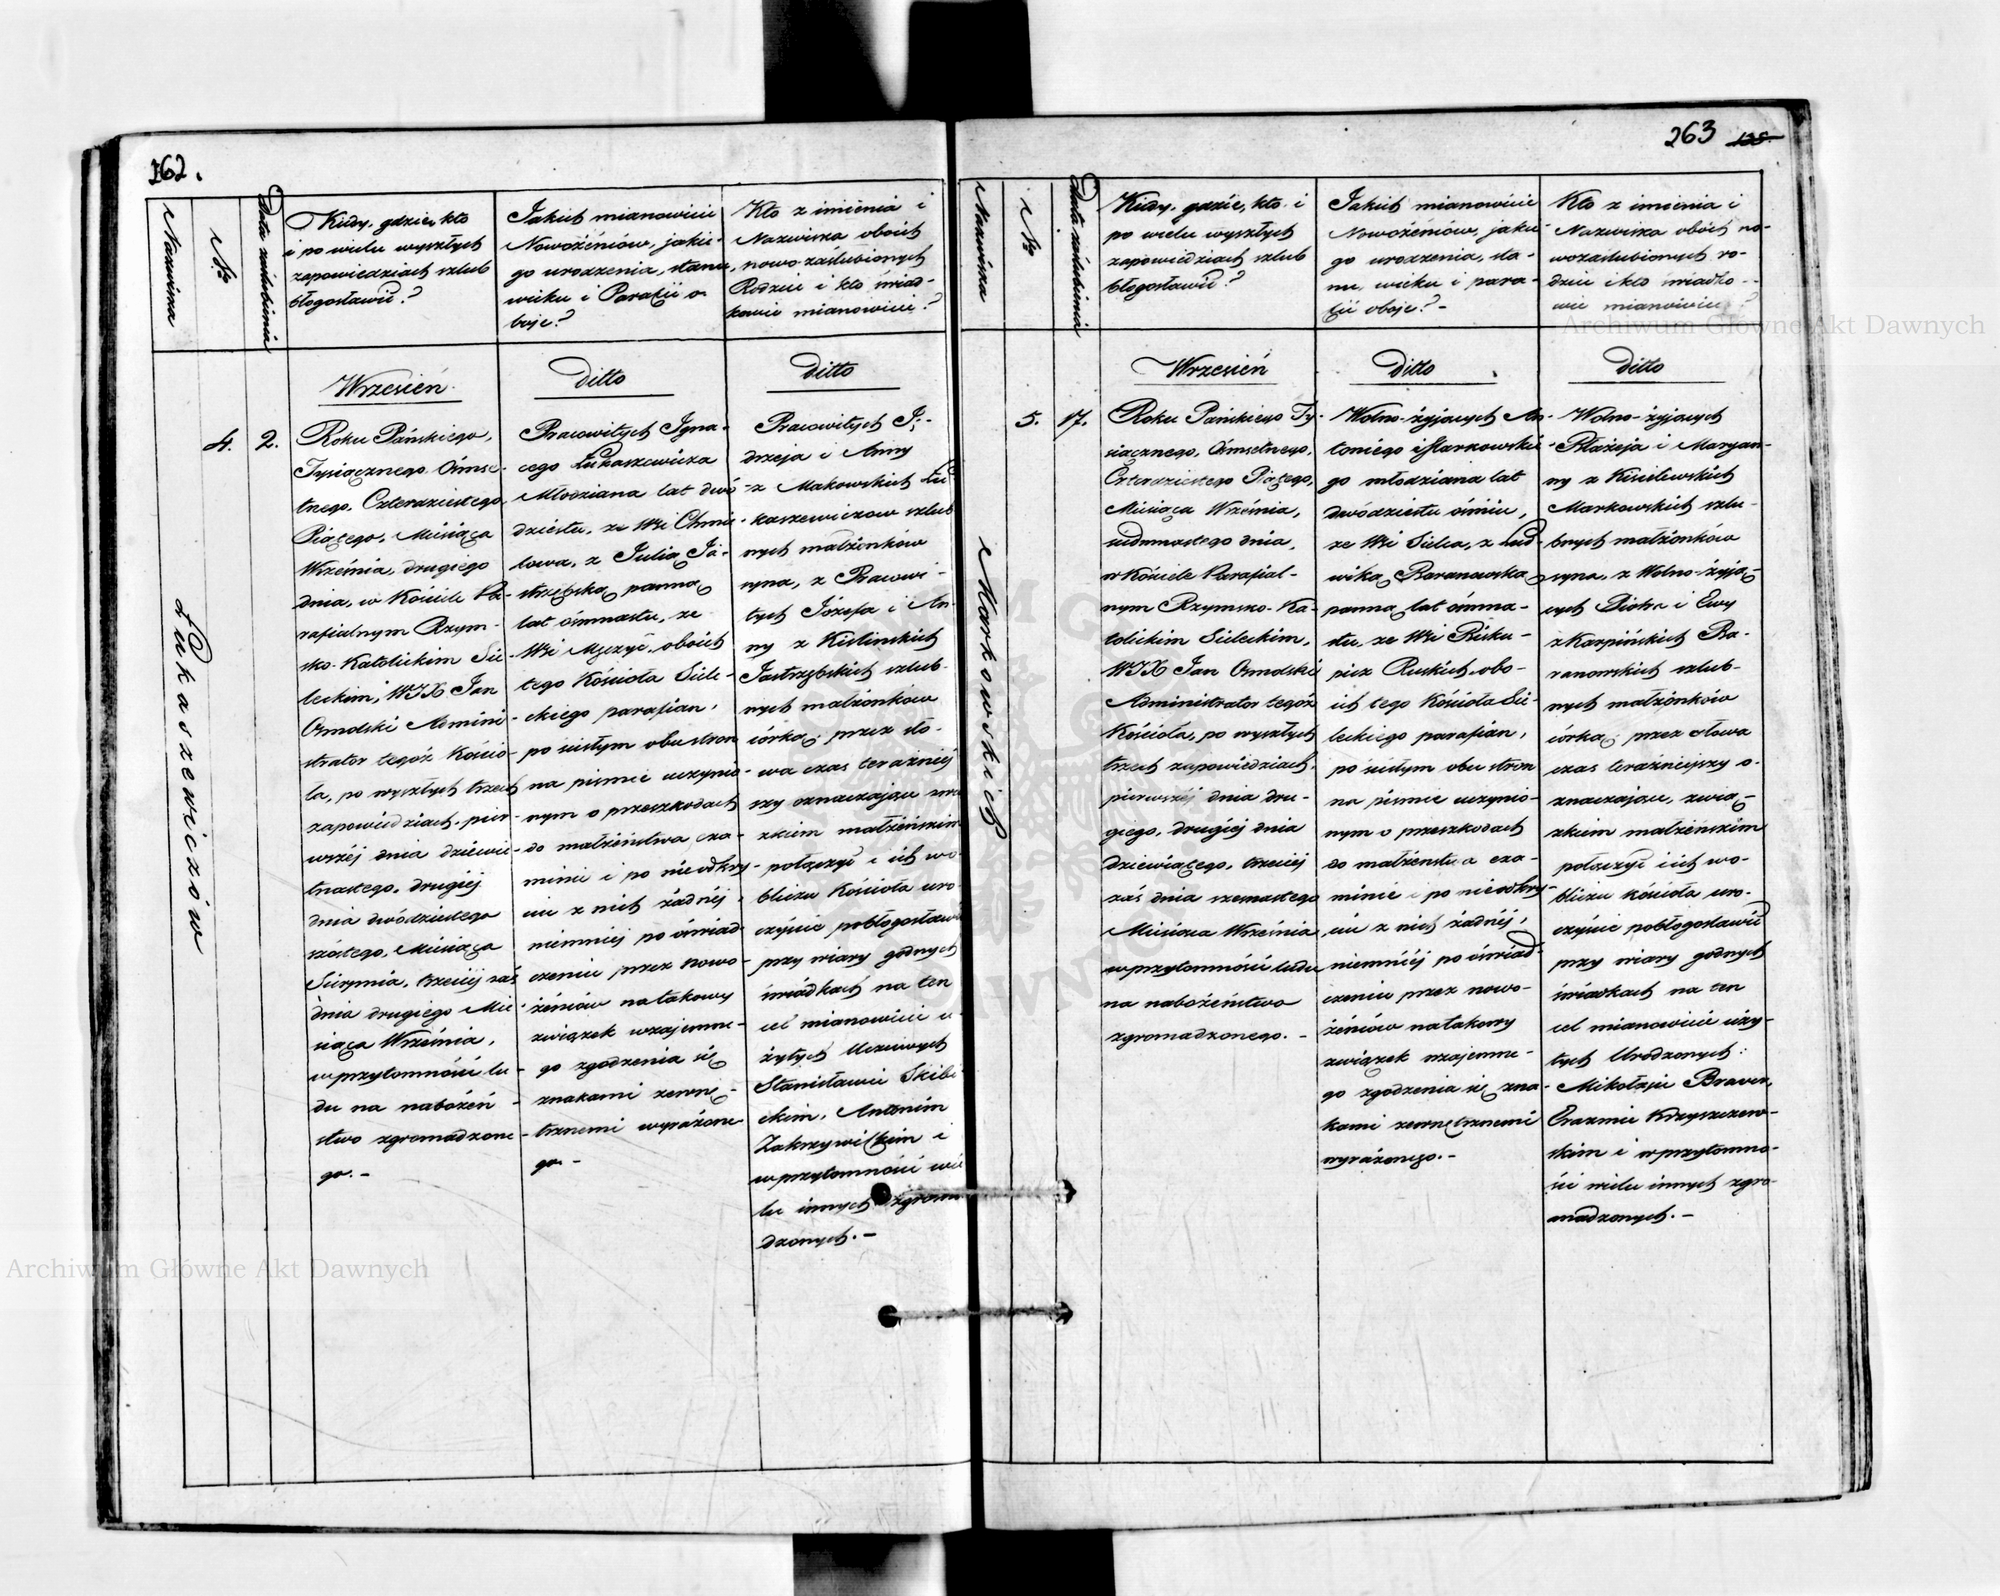 262.
Nazwiska
No
Data zaślubienia
Kiedy, gdzie, kto
i po wielu wyszłych
zapowiedziach szlub
błogosławił?
Jakich mianowicie
Nowożeńców, jakie-
go urodzenia, stanu,
wieku i Parafii o-
boje?
Kto z imienia i
Nazwiska oboich
nowo-zaślubionych
Rodzice i kto świad-
kowie mianowicie?
Wrzesień
ditto
ditto
Łukaszewiczów
4.
2.
Roku Pańskiego,
Tysiącznego Ośmse-
tnego, Czterdziestego
Piątego, Miesiąca
Września, drugiego
dnia, w Kościele Pa-
rafialnym Rzym-
sko-Katolickim Sie-
leckim, WJX Jan
Ozmolski Admini-
strator tegóż Kościo-
ła, po wyszłych trzech
zapowiedziach, pier-
wszéj dnia dziewię-
tnastego, drugiéj
dnia dwódziestego
szóstego, Miesiąca
Sierpnia, trzeciéj zaś
dnia drugiego Mie-
siąca Września,
w przytomności lu-
du na nabożeń-
stwo zgromadzone-
go. -
Pracowitych Igna-
cego Łukaszewicza
Młodziana lat dwó-
dziestu, ze Wsi Chmie-
lowa, z Julią Ja-
strzębską panną
lat ośmnastu, ze
Wsi Mężyć, oboich
tego Kościoła Siele-
ckiego parafian,
po ścisłym obustron-
na piśmie uczynio-
nym o przeszkodach
do małżeństwa exa-
minie i po nieodkry-
ciu z nich żadnéj,
niemniéj po oświad-
czeniu przez Nowo-
żeńców na takowy
związek wzajemne-
go zgodzenia się
znakami zewnę-
trznemi wyrażone-
go. -
Pracowitych Ję-
drzeja i Anny
z Makowskich Łu-
kaszewiczow szlub-
nych małżonków
syna, z Pracowi-
tych Józefa i An-
ny z
Jastrzębskich szlub-
nych małżonkow
córką, przez sło-
wa czas teraźniéj-
szy oznaczające zwią-
zkiem małżeńskim
połączył i ich wo-
bliczu Kościoła uro-
czyście pobłogosławił
przy wiary godnych
świádkach na ten
cel mianowicie u-
żytych Uczciwych
Stanisławie Skibi-
ckim, Antonim
Zakrzywickim i
w przytomności wie-
lu innych zgroma-
dzonych. -
263
Nazwiska
No
Data zaślubienia
Kiedy, gdzie, kto i
po wielu wyszłych
zapowiedziach szlub
błogosławił?
Jakich mianowicie
Nowożeńców, jakie-
go urodzenia, sta-
nu, wieku i para-
fii oboje? -
Kto z imienia i
Nazwiska obóich no-
wozaślubionych ro-
dzice i kto świadko-
wie mianowicie?
Wrzesień
ditto
ditto
Markowskich
5.
17.
Roku Pańskiego Ty-
siącznego, Ośmsetnego,
Czterdziestego Piątego,
Miesiąca Września,
siedmnastego dnia,
w Kościele Parafial-
nym Rzymsko-Ka-
tolickim Sieleckim,
WJX Jan Ozmolski
Administrator tegóż
Kościoła, po wyszłych
trzech zapowiedziach,
pierwszéj dnia dru-
giego, drugiéj dnia
dziewiątego, trzeciéj
zaś dnia szesnastego
Miesiąca Września
w przytomności ludu
na nabożeństwo
zgromadzonego. -
Wolno-żyjących An-
toniego Markowskie-
go młodziana lat
dwódziestu ośmiu,
ze Wsi Sielca, z Lud-
wiką Baranowską
panną lat ośmna-
stu, ze Wsi Bisku-
picz Ruskich, obo-
ich tego Kościoła Sie-
leckiego parafian,
po ścisłym obustron-
na piśmie uczynio-
nym o przeszkodach
do małżeństwa exa-
minie i po nieodkry-
ciu z nich żadnéj,
niemniéj po oświad-
czeniu przez nowo-
żeńców na takowy
związek wzajemne-
go zgodzenia się zna-
kami zewnętrznemi
wyrażonego. -
Wolno-żyjących
Błażeja i Maryan-
ny z Kisielewskich
Markowskich szlu-
bnych małżonków
syna, z Wolno-żyją-
cych Piotra i Ewy
z Karpińskich Ba-
ranowskich szlub-
nych małżonków
córką, przez słowa
czas teraźniejszy o-
znaczające, zwią-
zkiem małżeńskim
połączył i ich wo-
bliczu Kościoła uro-
czyście pobłogosławił
przy wiary godnych
świadkach na ten
cel mianowicie uży-
tych Urodzonych:
Mikołaju
Erazmie Krzyszczew-
skim i w przytomno-
ści wielu innych zgro-
madzonych. -
Archiwum Główne Akt Dawnych
Archiwum Główne Akt Dawnych